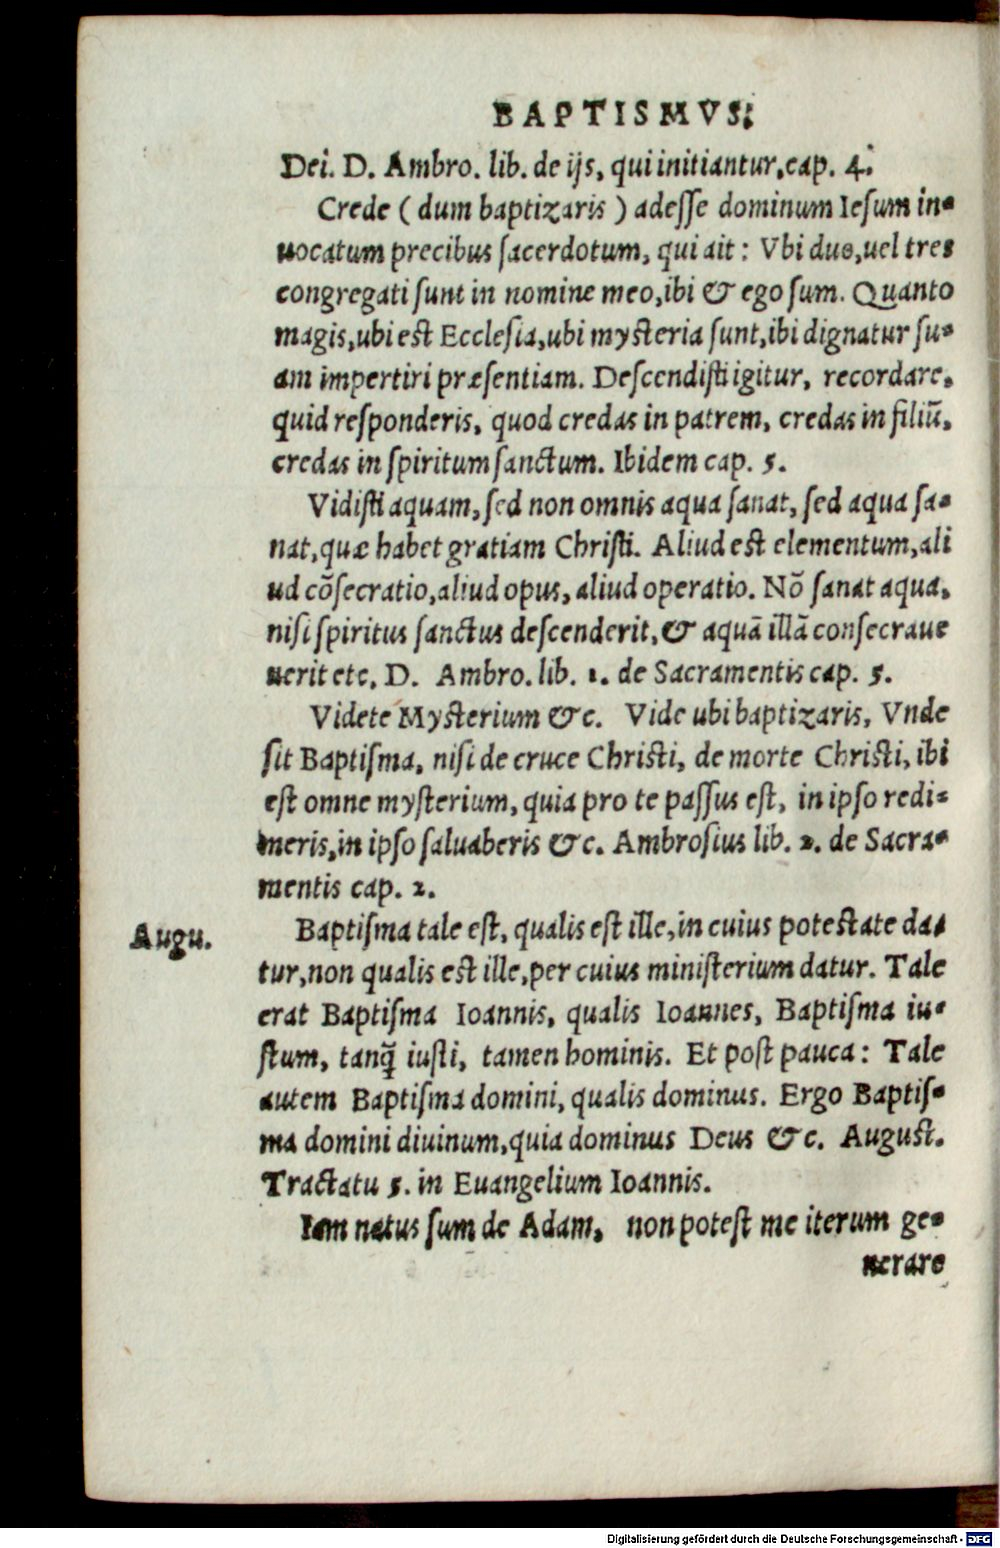 BAPTISMVS;
Dei. D. Ambro. lib. de ijs, qui initiantur, cap. 4.
Crede ( dum baptizaris ) adesse dominum Iesum in-
uocatum precibus sacerdotum, qui ait : Vbi duo, uel tres
congregati sunt in nomine meo, ibi & ego sum. Quanto
magis, ubi est Ecclesia, ubi mysteria sunt, ibi dignatur su-
am impertiri præsentiam. Descendisti igitur, recordare,
quid responderis, quod credas in patrem, credas in filiũ,
credas in spiritum sanctum. Ibidem cap. 5.
Vidisti aquam, sed non omnis aqua sanat, sed aqua sa-
nat, quæ habet gratiam Christi. Aliud est elementum, ali
ud cõsecratio, aliud opus, aliud operatio. Nõ sanat aqua,
nisi spiritus sanctus descenderit, & aquã illã consecraue
uerit etc, D. Ambro. lib. 1. de Sacramentis cap. 5.
Videte Mysterium &c. Vide ubi baptizaris, Vnde
sit Baptisma, nisi de cruce Christi, de morte Christi, ibi
est omne mysterium, quia pro te passus est, in ipso redi-
meris, in ipso saluaberis &c. Ambrosius lib. 2. de Sacra-
mentis cap. 2.
Augu.
Baptisma tale est, qualis est ille, in cuius potestate da-
tur, non qualis est ille, per cuius ministerium datur. Tale
erat Baptisma Ioannis, qualis Ioannes, Baptisma iu-
stum, tanq̃ iusti, tamen hominis. Et post pauca : Tale
autem Baptisma domini, qualis dominus. Ergo Baptis-
ma domini diuinum, quia dominus Deus &c. August.
Tractatu 5. in Euangelium Ioannis.
Iam natus sum de Adam, non potest me iterum ge-
nerare
Digitalisierung gefördert durch die Deutsche Forschungsgemeinschaft - DFG